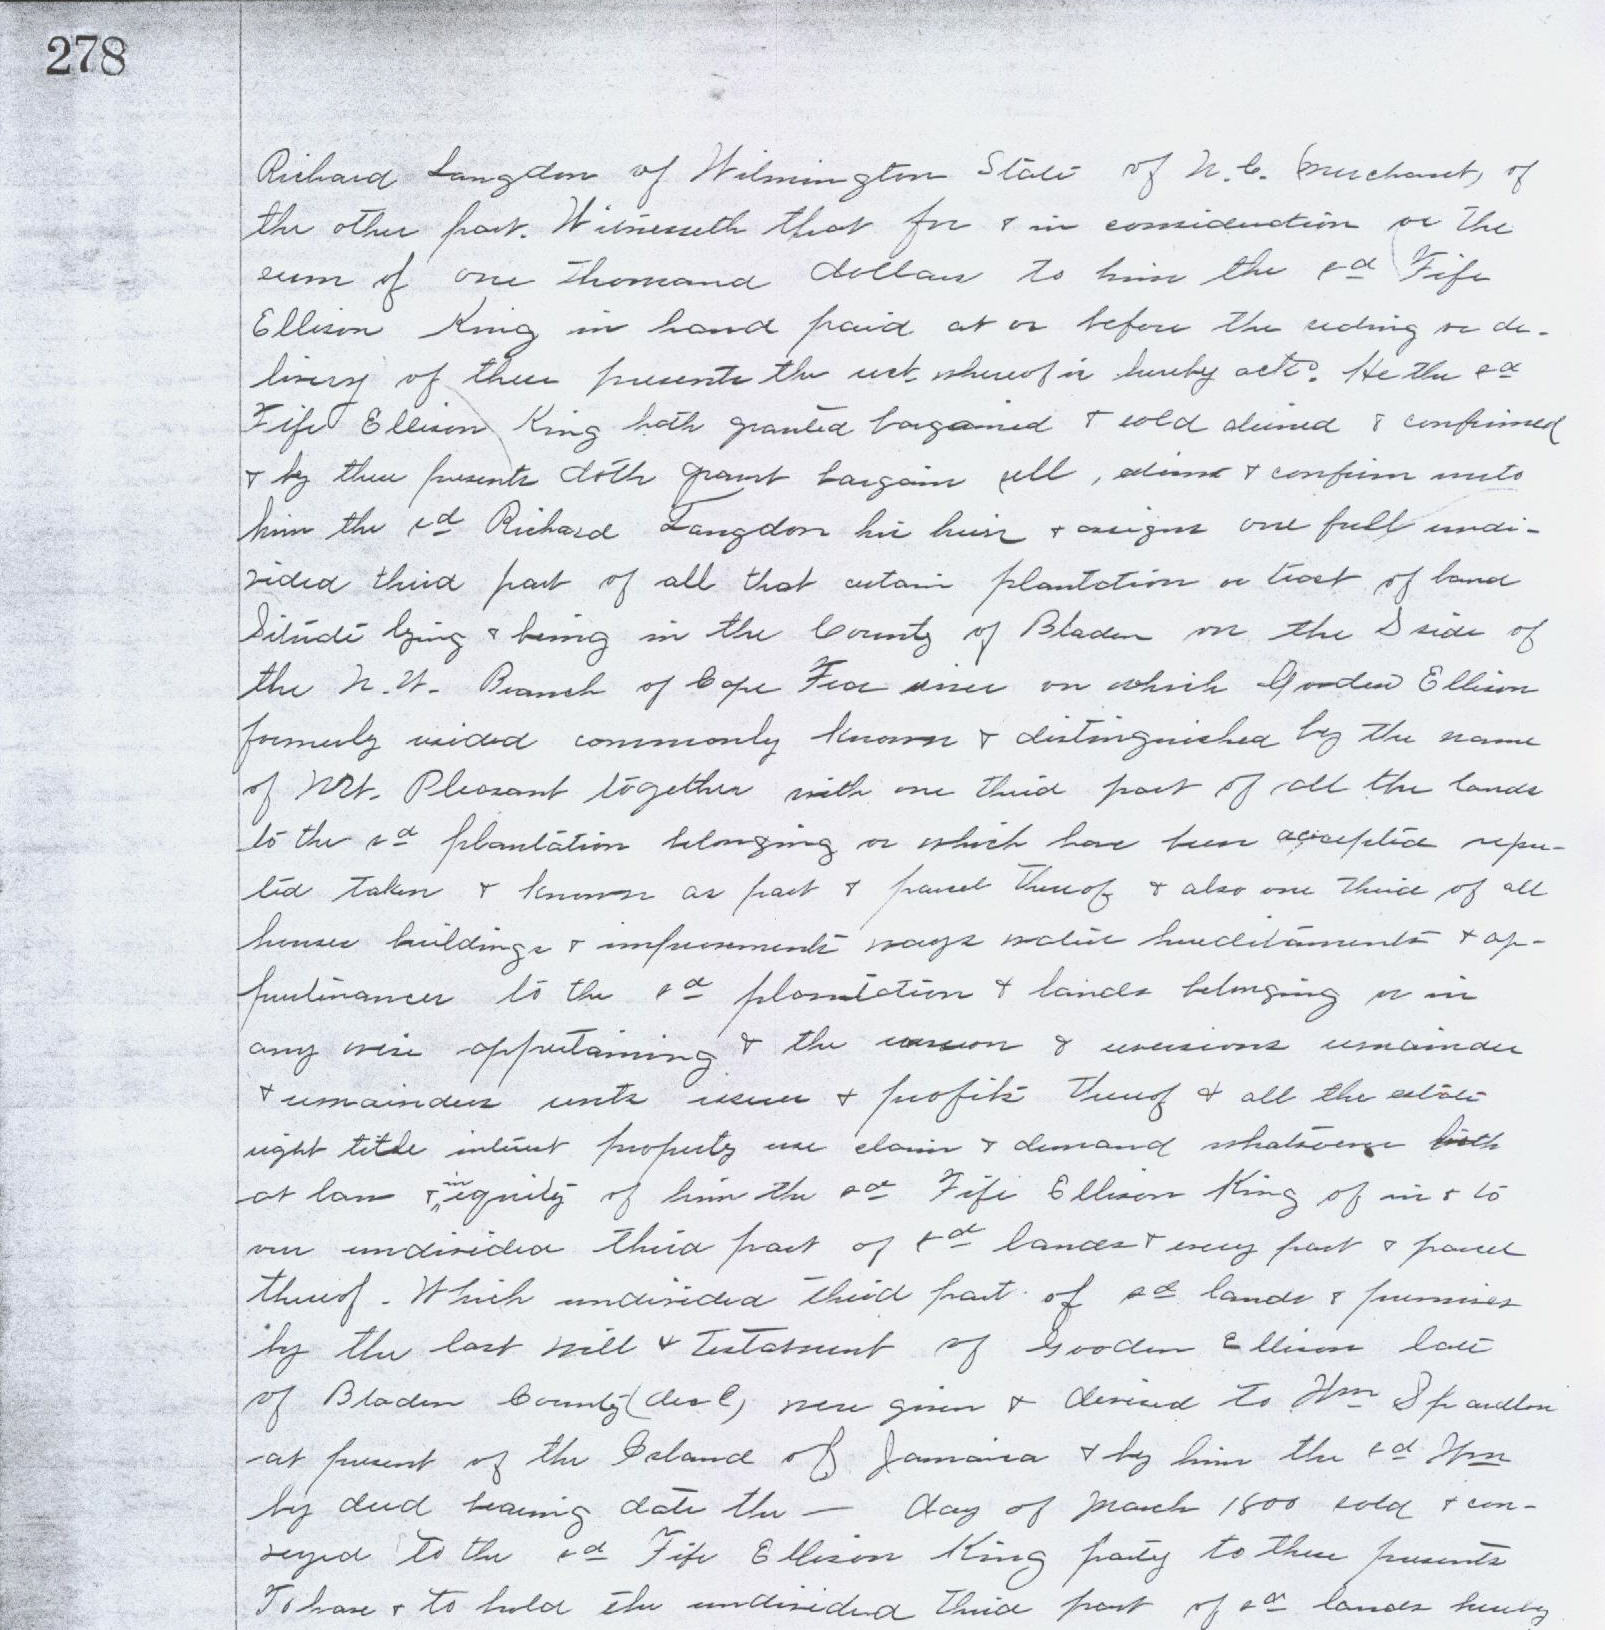 278
Richard Langdon of Wilmington State of N.C. (merchant) of
the other part. Witnesseth that for & in consideration or the
sum of one thousand dollars to him the sd Fife
Ellison King in hand paid at or before the sealing or de-
livery of these presents the rect. whereof is hereby ackd. He the sd
Fife Ellison King hath granted bargained & sold aliened & confirmed
& by these presents doth grant bargain sell, aliene & confirm unto
him the sd Richard Langdon his heirs & assigns one full undi-
vided third part of all that certain plantation or tract of land
Situate lying & being in the County of Bladen on the S side of
the N.W. Branch of Cape Fear river on which Gooden Ellison
formerly resided commonly known & distinguished by the name
of Mt. Pleasant together with one third part of all the lands
to the sd plantation belonging or which have been accepted repu-
ted taken & known as part & parcel thereof & also one third of all
houses buildings & improvements ways waters hereditaments & ap-
purtenances to the sd plantation & lands belonging or in
any wise appertaining & the reversion & reversions remainder
& remainders rents issues & profits thereof & all the estate
right title interest property use claim & demand whatsoever both
at law & in equity of him the sd Fife Ellison King of in & to
one undivided third part of sd lands & every part & parcel
thereof. Which undivided third part of sd lands & premises
by the last will & testament of Gooden Ellison late
of Bladen County (decd) were given & devised to Wm
at present of the Island of Jamaica & by him the sd Wm
by deed bearing date the — day of March 1800 sold & con-
veyed to the sd Fife Ellison King party to these presents
To have & to hold the undivided third part of sd lands hereby